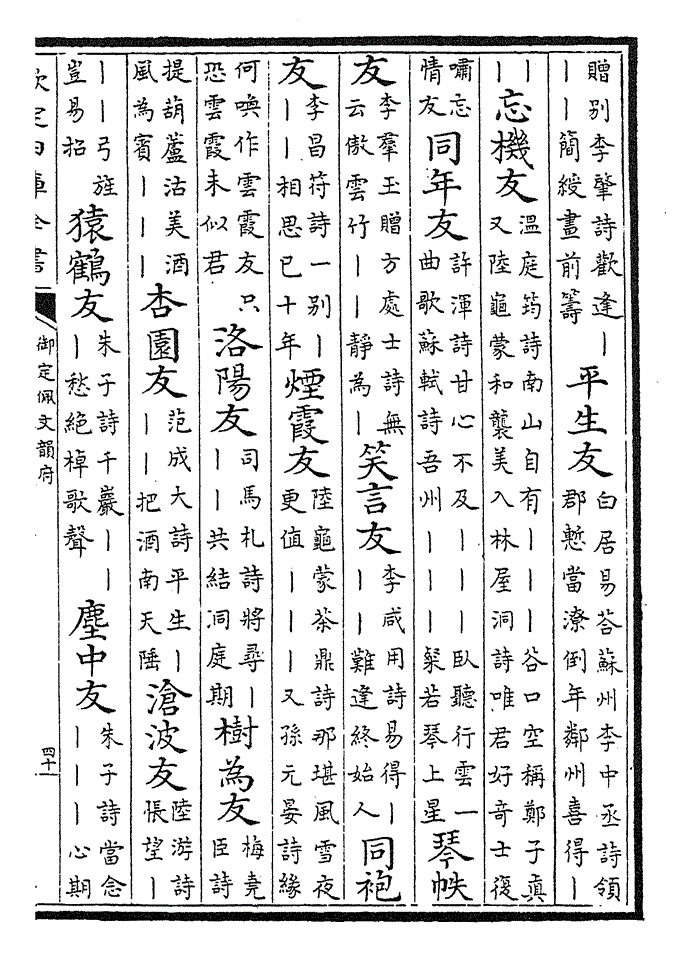 贈别李肇詩歡逢丨丨丨簡綬畫前籌 平生友 白居易荅蘇州李中丞詩領郡慙當潦倒年鄰州喜得丨
丨丨 忘機友 溫庭筠詩南山自有丨丨丨谷口空稱鄭子真又陸龜蒙和襲美入林屋洞詩唯君好奇士復
嘯忘情友 同年友 許渾詩甘心不及丨丨丨臥聽行雲一曲歌蘇軾詩吾州丨丨丨粲若琴上星 琴帙
友 李羣玉贈方處士詩無云傲雲竹丨丨靜為丨 笑言友 李咸用詩易得丨丨丨難逢終始人 同袍
友 李昌符詩一别丨丨丨相思已十年 煙霞友 陸龜蒙茶鼎詩那堪風雪夜更值丨丨丨又孫元晏詩緣
何喚作雲霞友只恐雲霞未似君 洛陽友 司馬札詩將尋丨丨丨共結洞庭期 樹為友 梅堯臣詩
提葫蘆沽美酒風為賓丨丨丨 杏園友 范成大詩平生丨丨丨把酒南天陲 滄波友 陸游詩悵望丨
丨丨弓旌豈易招 猿鶴友 朱子詩千巖丨丨丨愁絶棹歌聲 塵中友 朱子詩當念丨丨丨心期
欽定四庫全書
御定佩文韻府
四十一